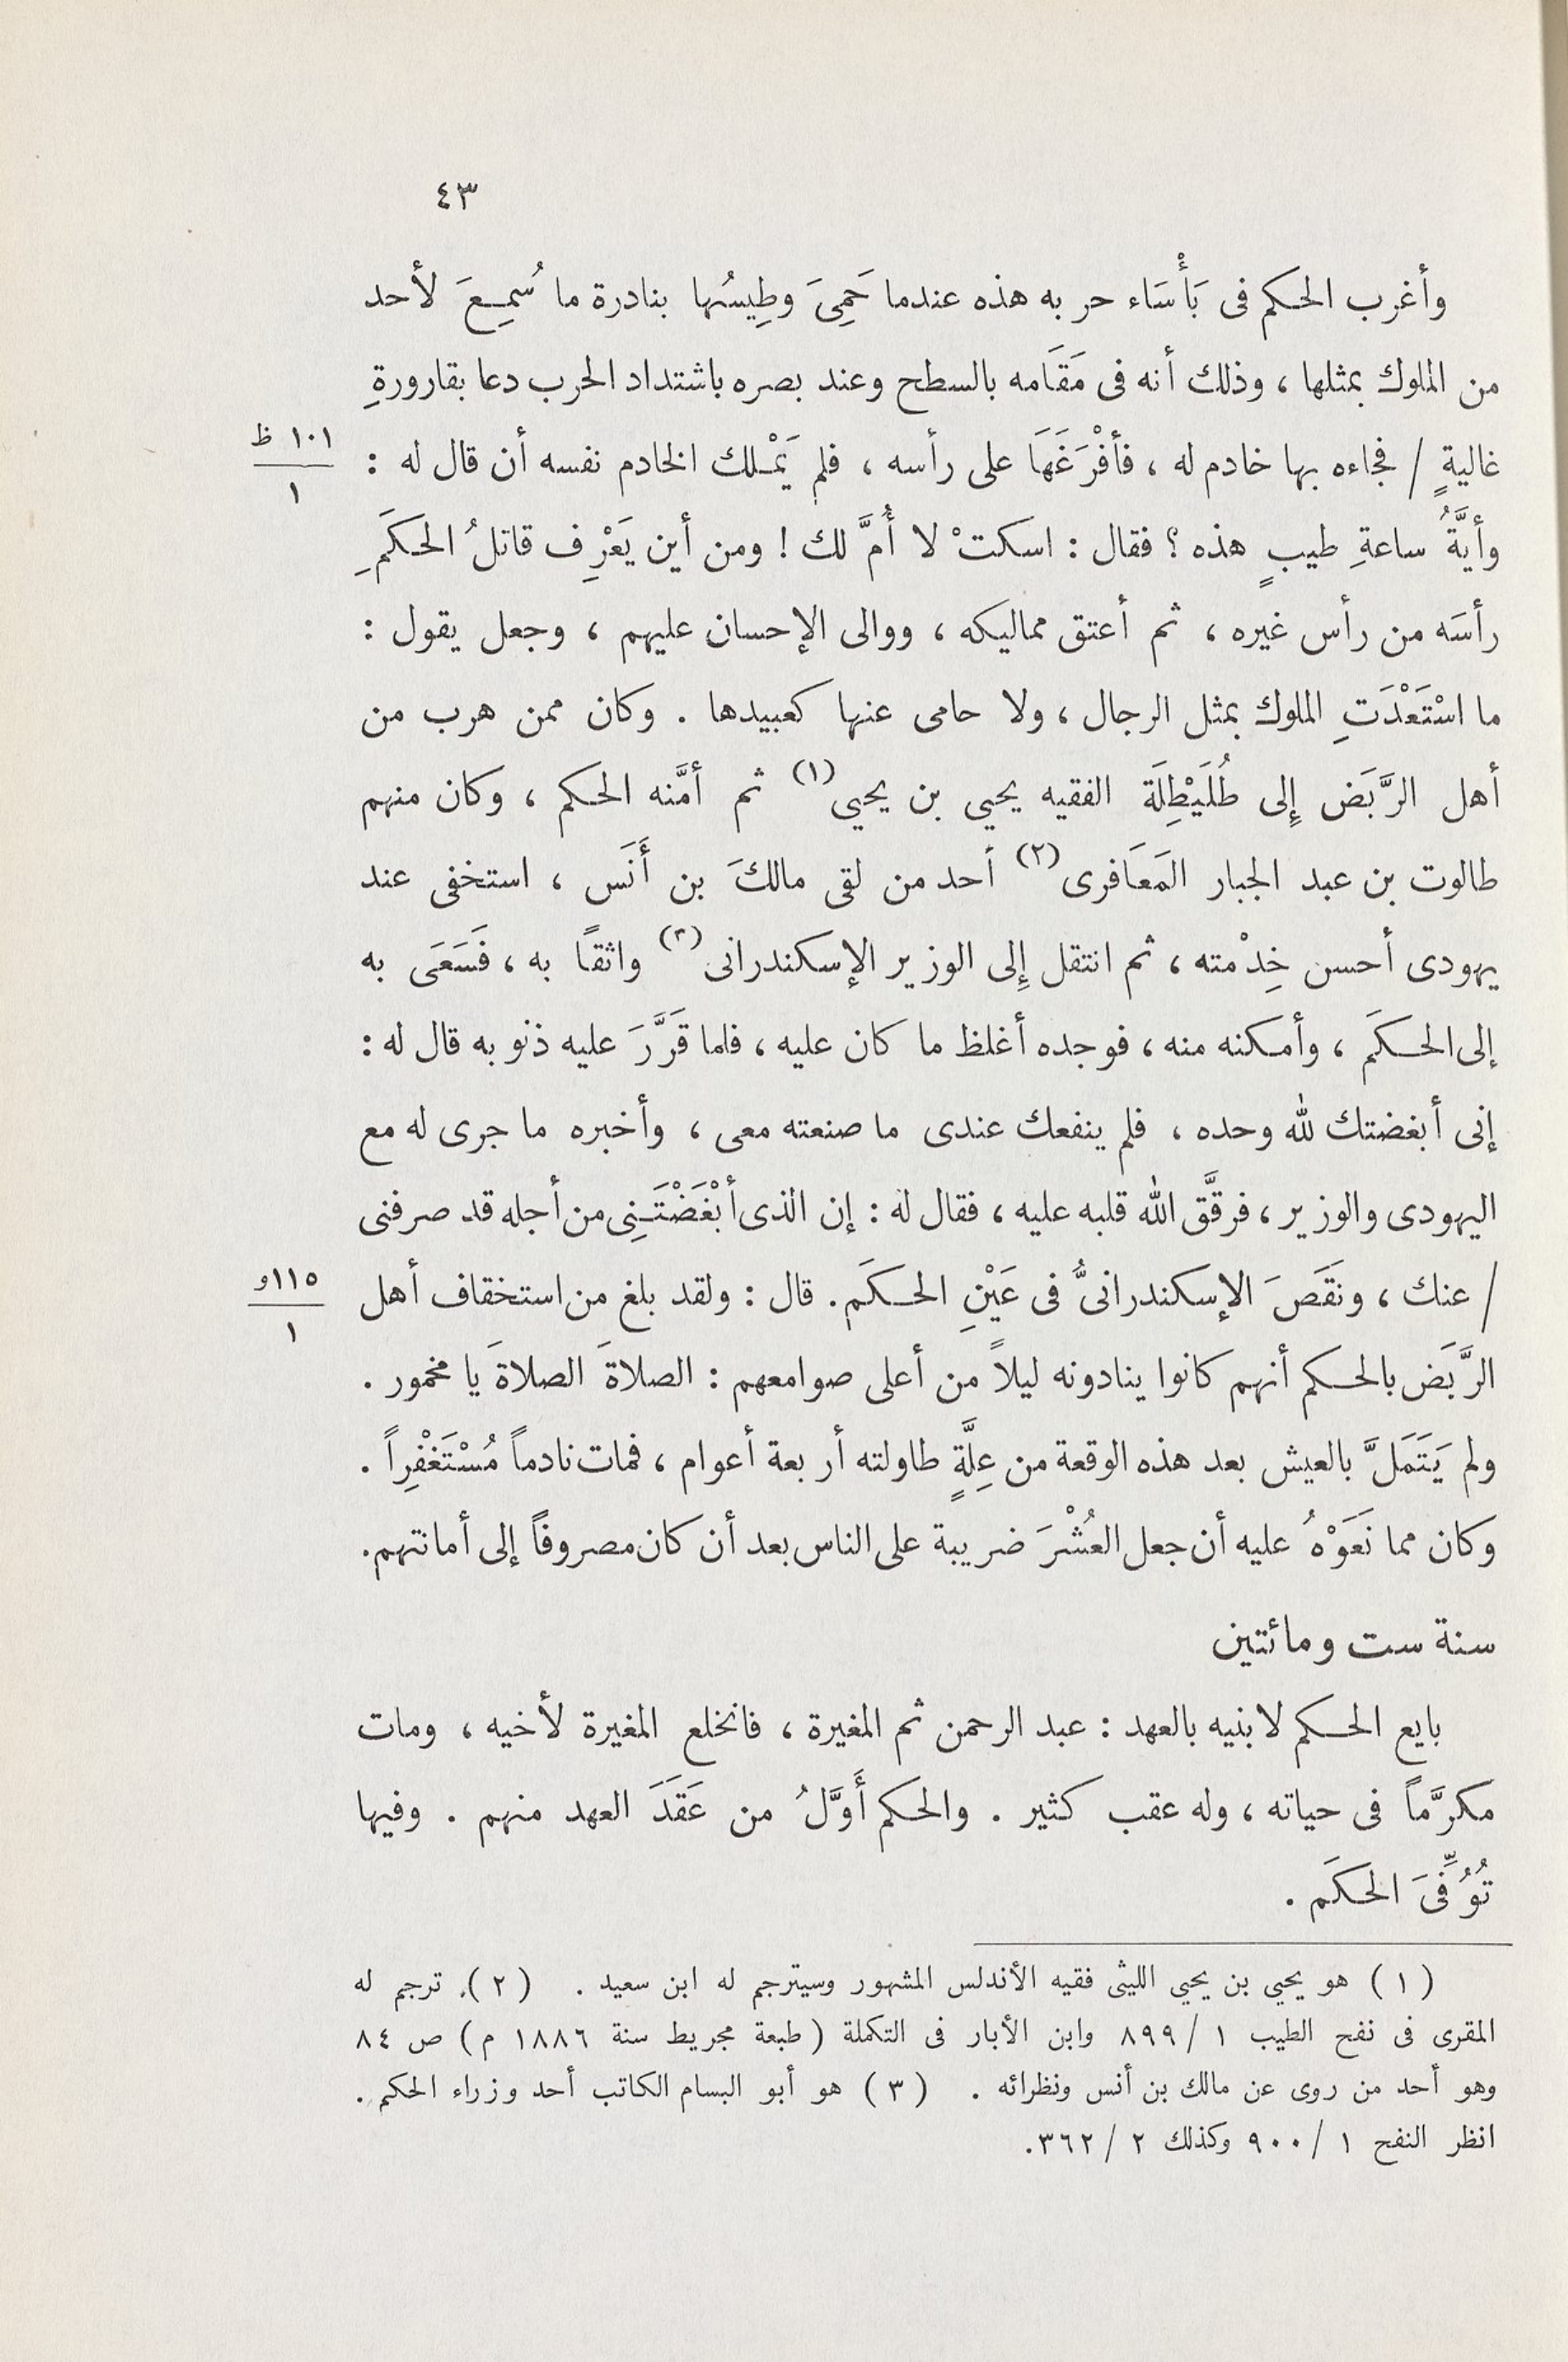 ٤٣
وأغرب الحكم فى بَأْسَاء حربه هذه عندما حَمِىَ وطِيسُها بنادرة ما سُمِعَ لأحد
من الملوك بمثلها ، وذلك أنه فى مَقَامه بالسطح وعند بصره باشتداد الحرب دعا بقارورةِ
غاليةٍ / فجاءه بها خادم له ، فأفْرَغَهَا على رأسه ، فلم يَمْلك الخادم نفسه أن قال له :
١٠١ ظ
١
وأيَّةُ ساعةِ طيبٍ هذه ؟ فقال : اسكتْ لا أُمَّ لك ! ومن أين يَعْرِف قاتلُ الحكَمِ
رأسَه من رأس غيره ، ثم أعتق مماليكه ، ووالى الإحسان عليهم ، وجعل يقول :
ما اسْتَعْدَتِ الملوك بمثل الرجال ، ولا حامى عنها كعبيدها . وكان ممن هرب من
أهل الرَّبَض إلى طُلَيْطِلَة الفقيه يحيي بن يحيي(١) ثم أمَّنه الحكم ، وكان منهم
طالوت بن عبد الجبار المَعَافرى(٢) أحد من لقى مالكَ بن أَنَس ، استخفى عند
يهودى أحسن خِدْمته ، ثم انتقل إلى الوزير الإسكندرانى(٣) واثقاً به ، فَسَعَى به
إلى الحكَم ، وأمكنه منه ، فوجده أغلظ ما كان عليه ، فلما قَرَّرَ عليه ذنوبه قال له :
إنى أبغضتك لله وحده ، فلم ينفعك عندى ما صنعته معى ، وأخبره ما جرى له مع
اليهودى والوزير ، فرقَّق الله قلبه عليه ، فقال له : إن الذى أبْغَضْتَنِى من أجله قد صرفنى
/ عنك ، ونَقَصَ الإسكندرانىُّ فى عَيْنِ الحكَم . قال : ولقد بلغ من استخقاف أهل
١١٥و
١
الرَّبَض بالحكم أنهم كانوا ينادونه ليلاً من أعلى صوامعهم : الصلاةَ الصلاةَ يا مخمور .
ولم يَتَمَلَّ بالعيش بعد هذه الوقعة من عِلَّةٍ طاولته أربعة أعوام ، فمات نادماً مُسْتَغْفِراً .
وكان مما نَعَوْهُ عليه أن جعل العُشْرَ ضريبة على الناس بعد أن كان مصروفاً إلى أمانتهم .
سنة ست ومائتين
بايع الحكم لابنيه بالعهد : عبد الرحمن ثم المغيرة ، فانخلع المغيرة لأخيه ، ومات
مكرَّماً فى حياته ، وله عقب كثير . والحكم أَوَّلُ من عَقَدَ العهد منهم . وفيها
تُوُفِّىَ الحكَم .
( ١ ) هو يحيي بن يحيي الليثى فقيه الأندلس المشهور وسيترجم له ابن سعيد . ( ٢ ) ترجم له
المقرى فى نفح الطيب ١ / ٨٩٩ وابن الأبار فى التكملة ( طبعة مجريط سنة ١٨٨٦ م ) ص ٨٤
وهو أحد من روى عن مالك بن أنس ونظرائه . ( ٣ ) هو أبو البسام الكاتب أحد وزراء الحكم .
انظر النفح ١ / ٩٠٠ وكذلك ٢ / ٣٦٢ .